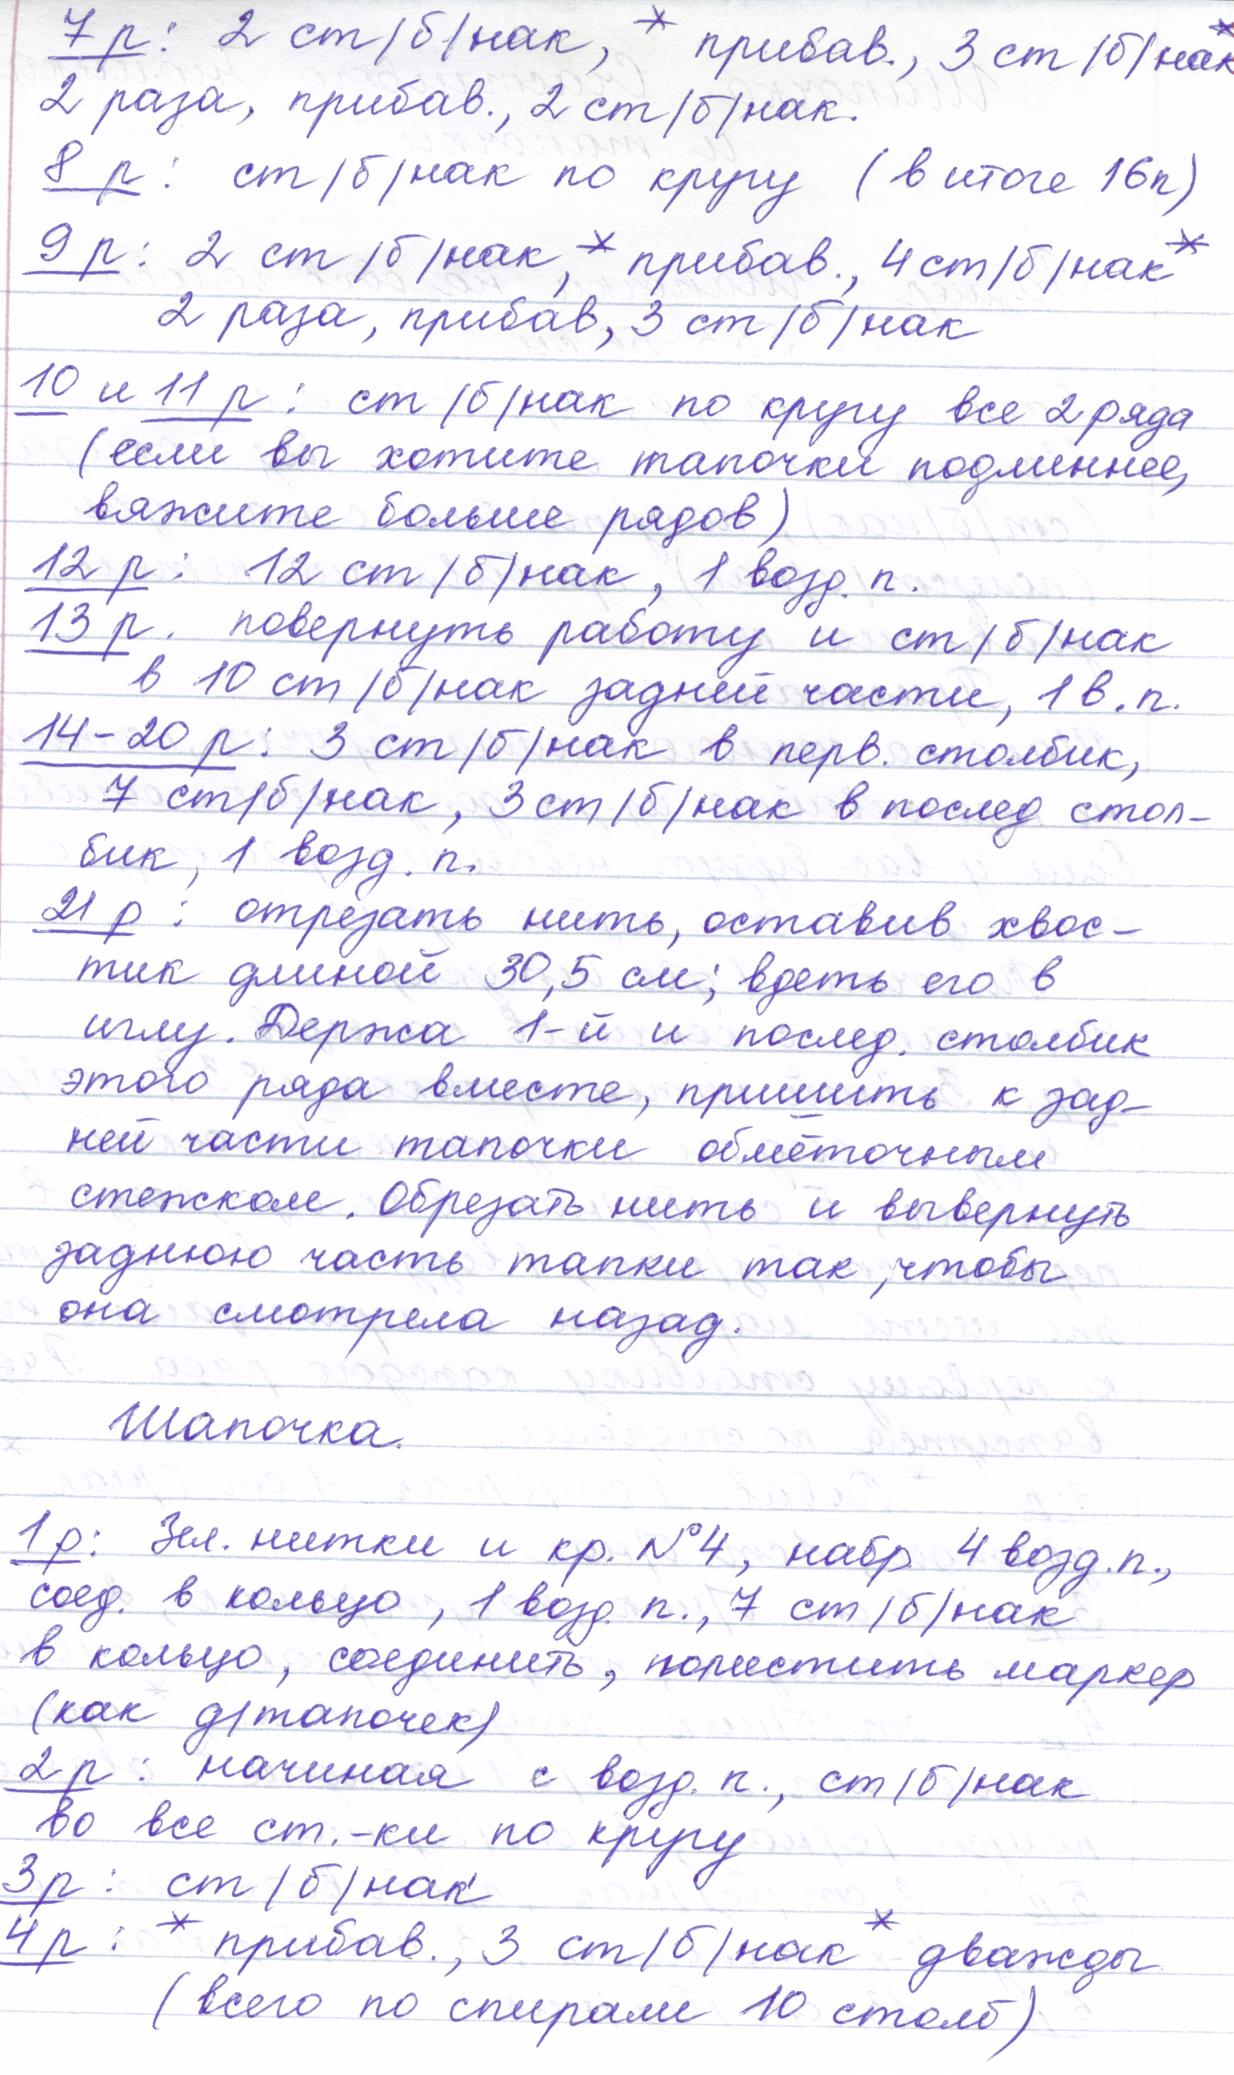 7 р: 2 ст/б/нак, * прибав., 3 ст/б/нак*
2 раза, прибав., 2 ст/б/нак.
8 р: ст/б/нак по кругу (в итоге 16п)
9 р: 2 ст/б/нак, * прибав., 4 ст/б/нак*
2 раза, прибав, 3 ст/б/нак
10 и 11 р: ст/б/нак по кругу все 2 ряда
(если вы хотите тапочки подлиннее,
вяжите больше рядов)
12 р: 12 ст/б/нак, 1 возд. п.
13 р. повернуть работу и ст/б/нак
в 10 ст/б/нак задней части, 1 в. п.
14-20 р: 3 ст/б/нак в перв. столбик,
7 ст/б/нак, 3 ст/б/нак в послед стол-
бик, 1 возд. п.
21 р: отрезать нить, оставив хвос-
тик длиной 30,5 см; вдеть его в
иглу. Держа 1-й и послед. столбик
этого ряда вместе, пришить к зад-
ней части тапочки обмёточным
стежком. Обрезать нить и вывернуть
заднюю часть тапки так, чтобы
она смотрела назад.
Шапочка.
1 р: Зел. нитки и кр. №4, набр 4 возд. п.,
соед. в кольцо, 1 возд. п., 7 ст/б/нак
в кольцо, соединить, поместить маркер
(как д/тапочек)
2 р: начиная с возд. п., ст/б/нак
во все ст.-ки по кругу
3 р: ст/б/нак
4 р: * прибав., 3 ст/б/нак * дважды
(всего по спирали 10 столб)